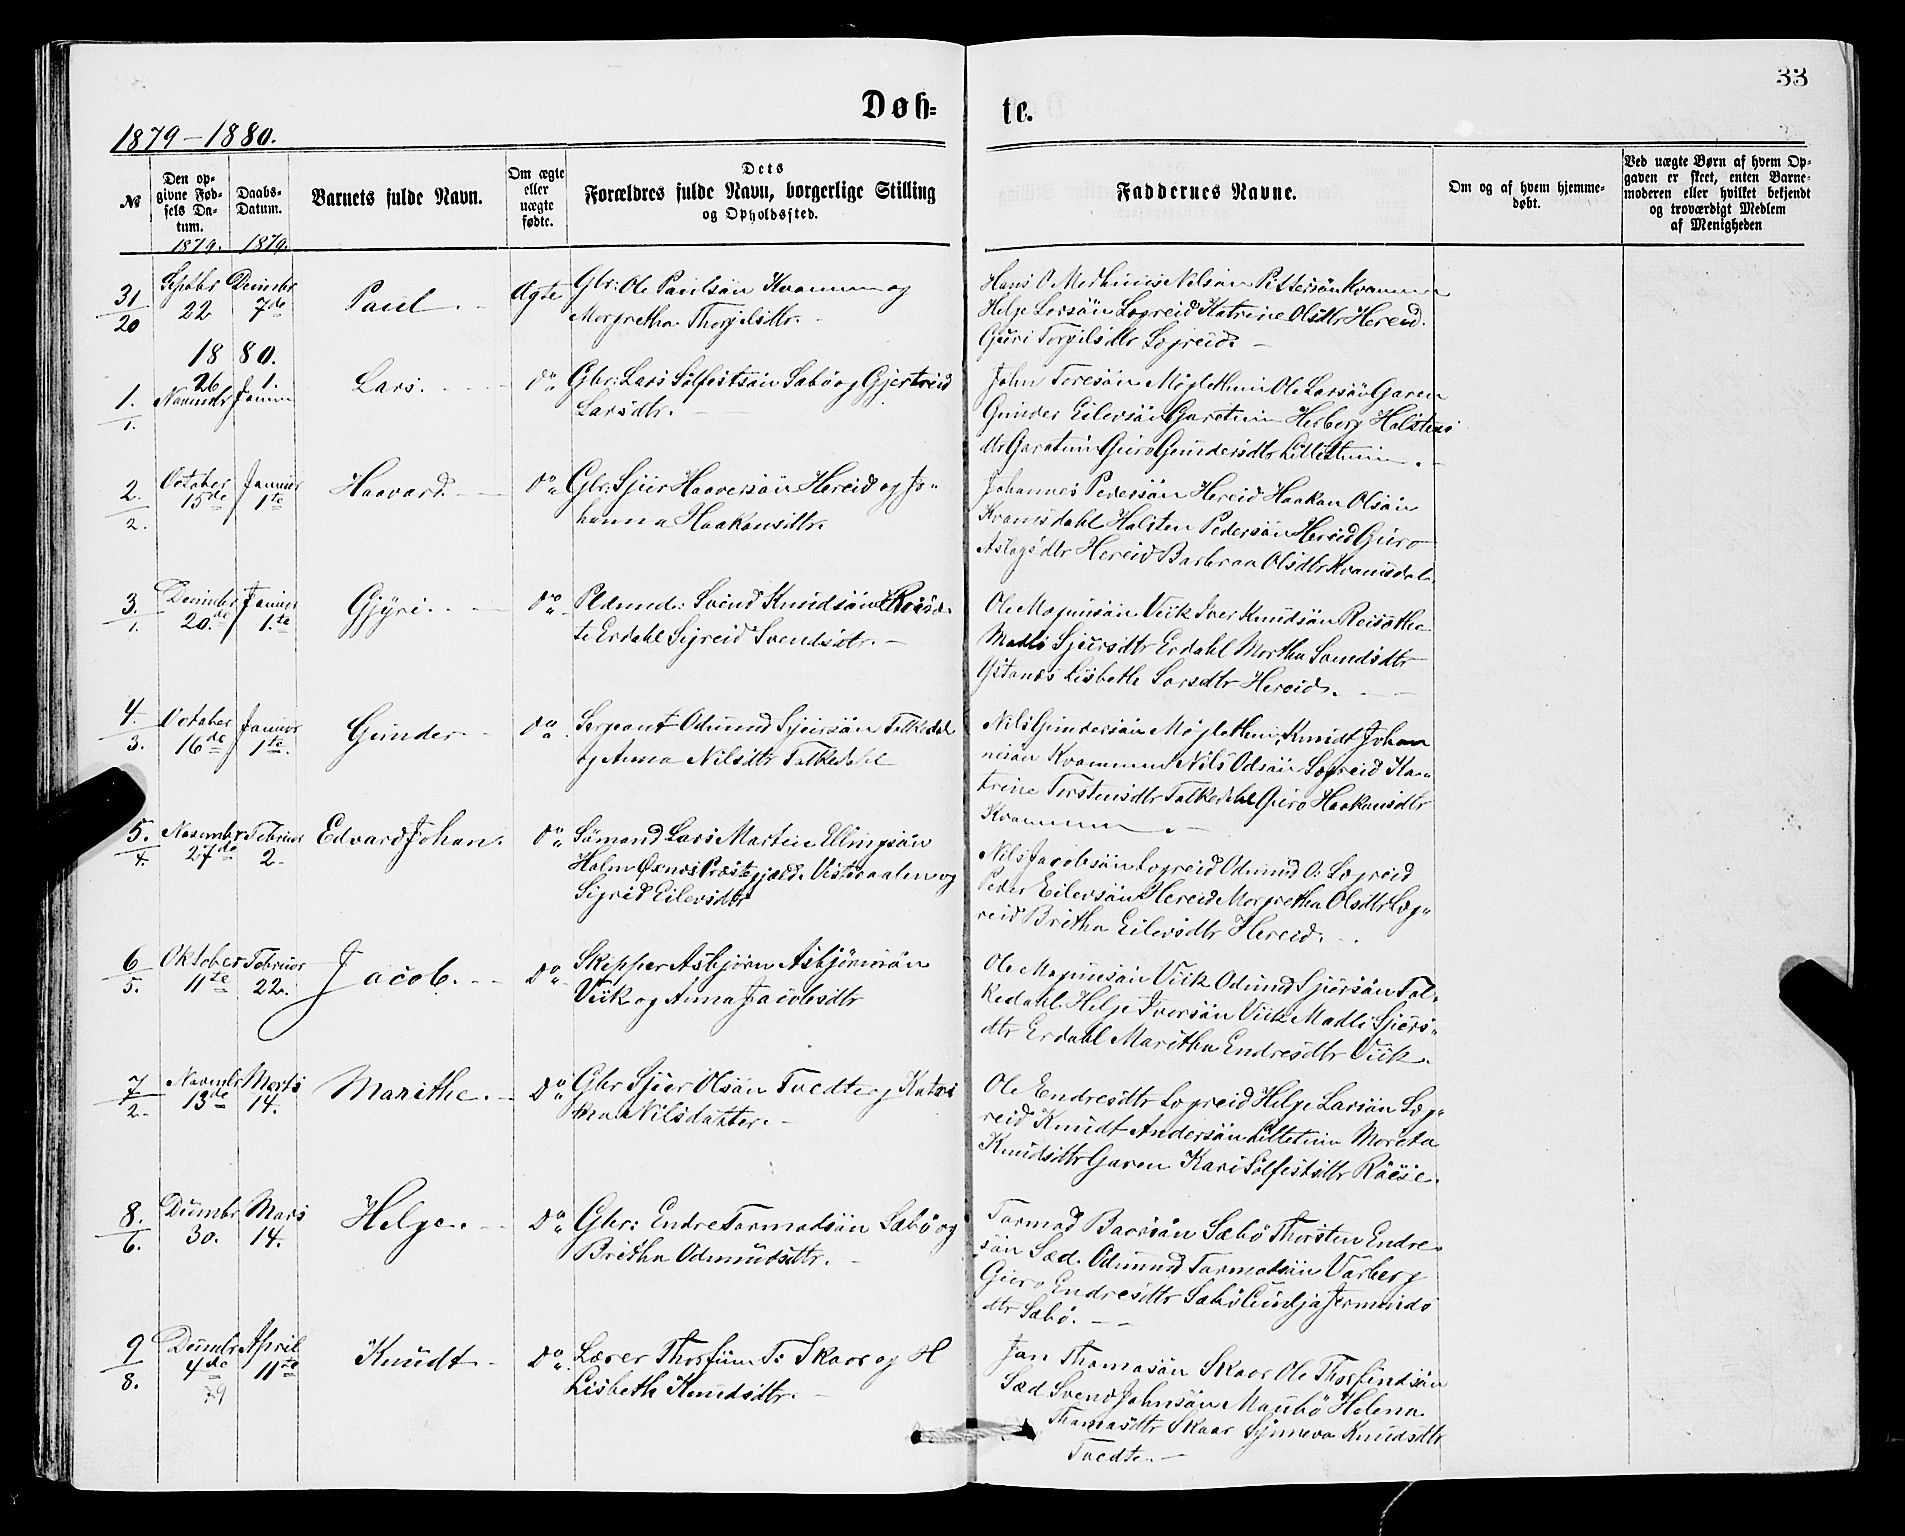 33
Døb-
te.
1879–1880.
№
Den op-
givne Fød-
sels Da-
tum.
1879.
Daabs-
Datum.
1879.
Barnets fulde Navn.
Om ægte
eller
uægte
fødte.
Dets
Forældres fulde Navn, borgerlige Stilling
og Opholdssted.
Faddernes Navne.
Om og af hvem hjemme-
døbt.
Ved uægte Børn af hvem Op-
gaven er skeet, enten Barne-
moderen eller hvilket bekjendt
og troværdigt Medlem
af Menigheden
31
20
Septbr
22
Decembr
7de
Paul.
Ægte
Gbr: Ole Paulsön Kvammen og
Morgretha Thorgilsdtr.
Helge Larsön Legreid Katrine Olsdtr Hereid.
Guri Torgilsdtr Legreid.
1880.
1.
1.
26
Novembr
1.
Januar
Lars.
Do
Gbr: Lars Solfestsön Sæbö og Gjertrud
Larsdtr.
John Toresön Møglethun Ole Larsön Garen
Gunder Eilevsön Garetun Herborg Halstens
dtr Garatun Guro Gundersdtr Litletun.
2.
2.
October
15de
Januar
1te
Haavard.
Do
Gbr. Sjur Haaversön Hereid og Jo-
hanna Haakonsdtr.
Johannes Pedersön Hereid Haakon Olsön
Kvamsdahl Halsten Pedersön Hereid Guro
Aslagsdtr Hereid Barbraa Olsdtr Kvamsdal.
3.
1.
Decembr
20.de
Januar
1.te
Gjyri.
Do
Svend Knudsön
Erdahl Sigreid Svendsdtr.
Ole Magnusön Viik Iver Knudsön Reisæthe
Madli Sjursdtr Erdahl Martha Svendsdtr
Ystanes Lisbeth Larsdtr Hereid.
4.
3.
October
16de
Januar
1te.
Gunder
Do
Sergeant Odmund Sjursön Talkedal
og Anna Nilsdtr Talkedahl
Nils Gundersön Møglethun, Knudt Johan
nesön Kvammen Nils Odsön Legreid Ka-
trine Torstensdtr Talkedahl Guro Haakonsdtr
Kvammen.
5.
4.
Novembr
27de
Februar
2.
Edvard Johan.
Do
Sömand Lars Martin Ellingsön
Holm Öxnes Præstegjæld. Vesteraalen og
Sigrid Eilevsdtr
Nils Jacobsön Legreid Odmund O. Legreid
Peder Eilevsön Hereid Morgretha Olsdtr Leg-
reid Britha Eilevsdtr Hereid.
6
5.
Oktober
11te
Februar
22.
Jacob.
Do
Skipper Asbjörn Asbjörnsön
Viik og Anna Jacobsdtr
Ole Magnusön Viik Odmund Sjursön Tal-
kedahl Helge Iversön Viik Madli Sjurs-
dtr Erdahl Maritha Endresdtr Viik.
7
2.
Novembr
13de
Marts
14.
Marithe.
Do
Gbr Sjur Olsön Tvedte og Katri
na Nilsdatter.
Ole Endresdtr Legreid Helge Larsön Leg-
reid Knudt Andersön Litletun Moreta
Knudsdtr Garen Kari Solfestsdtr Röese.
8.
6.
Decembr
30.
Mars
14.
Helge.
Do
Gbr: Endre Tormodsön Sæbö og
Britha Odmundsdtr.
Tormod Baarsön Sæbö Thorsten Endre-
sön Sæd. Odmund Tormodsön Varberg
Guro Endresdtr Sæbö Gunlja Jermunds
dtr Sæbö.
9
8.
Decembr
4de
79
April
11te
Knudt
Do
Lærer Thorfinn T: Skaar og H
Lisbeth Knudsdtr.
Jon Thomasön Skaar Ole Thorfindsön
Sæd Svend Johnsön Maubö Helena
Thomasdtr Skaar Synneva Knudsdtr
Tvedte.